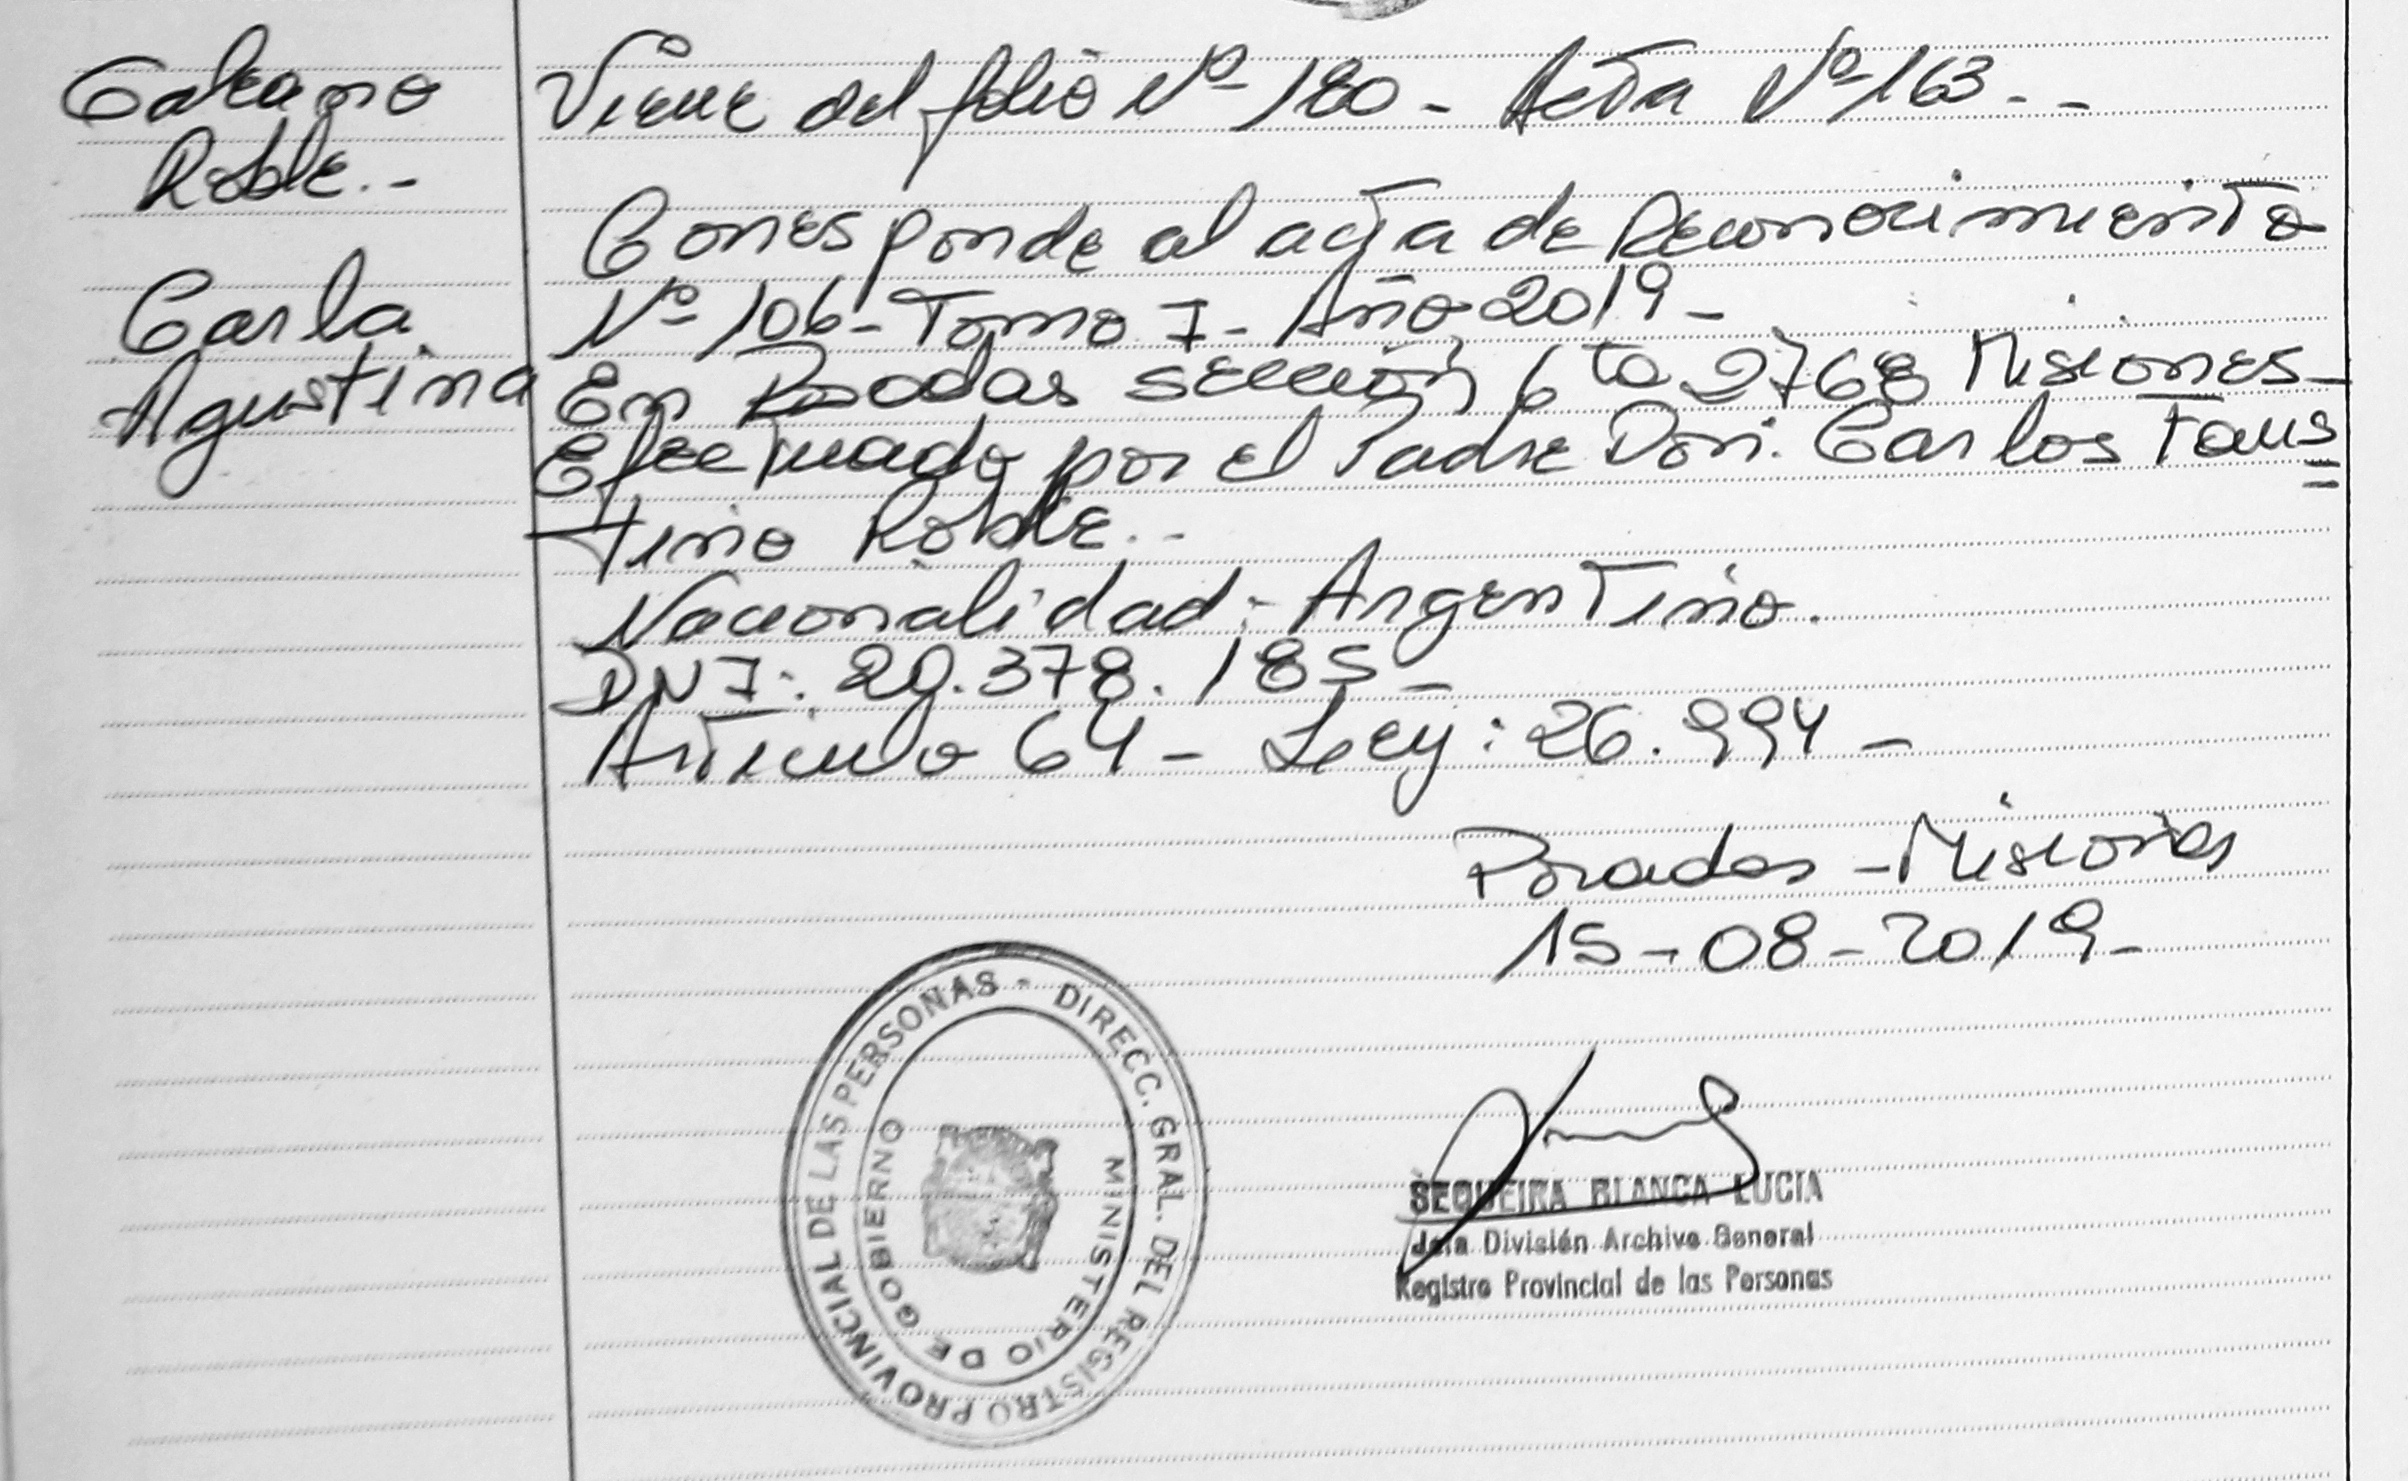 Galeano
Roble.-
Carla
Agustina
Viene del folio Nº 180 - Acta Nº 163 - -
Corresponde al acta de Reconocimiento
Nº 106 - Tomo I - Año 2019 -
En Posadas sección 6ta 2768 Misiones -
Efectuado por el Padre Don. Carlos Faus=
tino Roble. -
Nacionalidad: Argentino.
DNI: 29.378.185 -
Artículo 64 - Ley: 26.994 -
Posadas - Misiones
15-08-2019-
DIRECC. GRAL. DEL REGISTRO PROVINCIAL DE LAS PERSONAS -
MINISTERIO DE GOBIERNO
SEQUEIRA BLANCA LUCIA
Jefa División Archivo General
Registro Provincial de las Personas